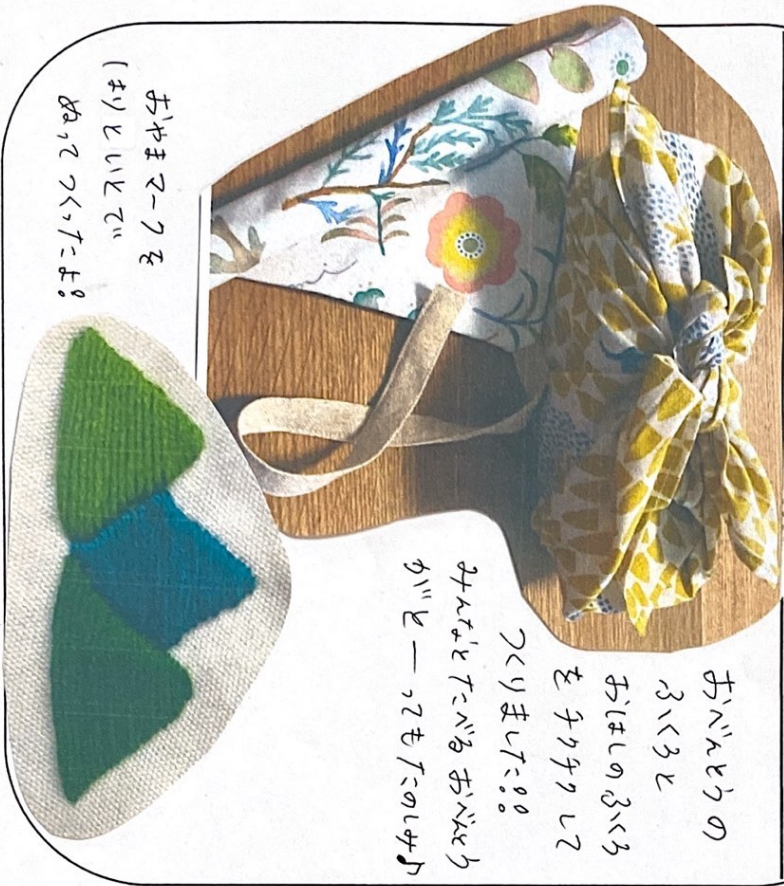 おべんとうの
ふくろと
おはしのふくろ
をチクチクして
つくりました!!
みんなとたべるおべんとう
がとーってもたのしみ♪
おやまマークを
はりといとで
ぬってつくったよ!!